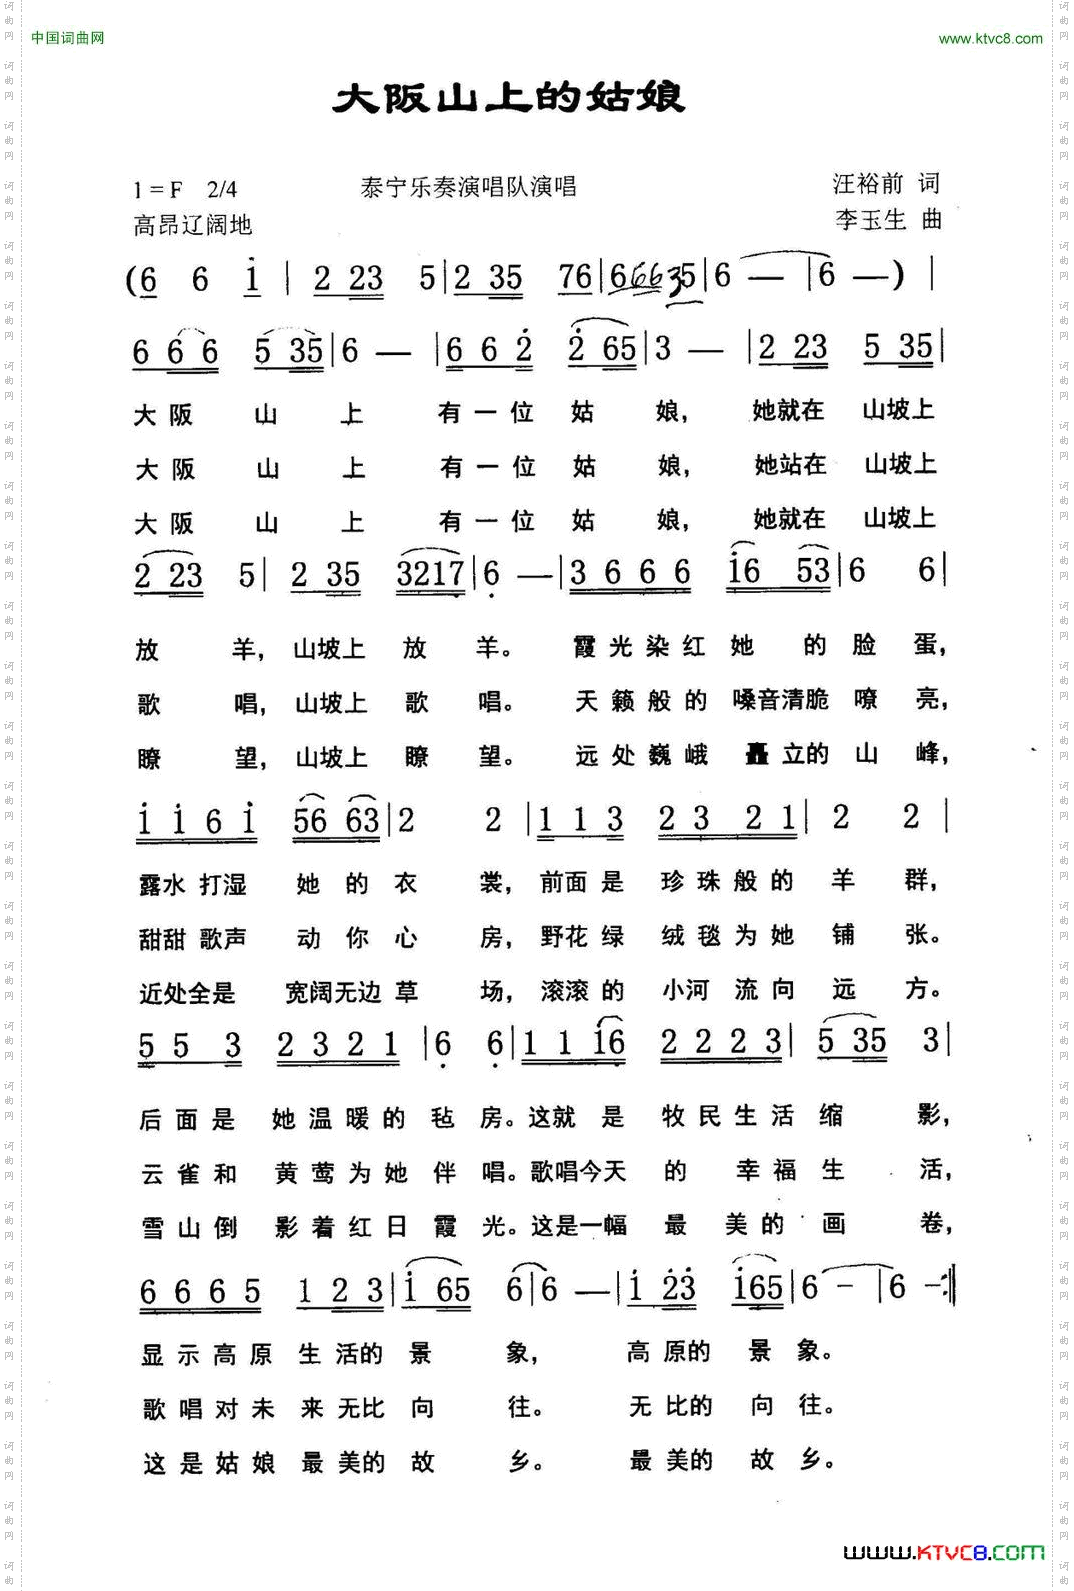 中国词曲网 www.ktvc8.com
大阪山上的姑娘
1=F 2/4 泰宁乐奏演唱队演唱 汪裕前 词
高昂辽阔地 李玉生 曲
(6 6 i | 2 23 5 | 2 35 76 | 6 66 35 | 6 — | 6 —) |
6 6 6 5 35 | 6 — | 6 6 2 2 65 | 3 — | 2 23 5 35 |
大阪山上有一位姑娘，她就在山坡上
大阪山上有一位姑娘，她站在山坡上
大阪山上有一位姑娘，她就在山坡上
2 23 5 | 2 35 3217 | 6 — | 3 6 6 6 i6 53 | 6 6 |
放羊，山坡上放羊。霞光染红她的脸蛋，
歌唱，山坡上歌唱。天籁般的嗓音清脆嘹亮，
瞭望，山坡上瞭望。远处巍峨矗立的山峰，
i i 6 i 56 63 | 2 2 | 1 1 3 2 3 2 1 | 2 2 |
露水打湿她的衣裳，前面是珍珠般的羊群，
甜甜歌声动你心房，野花绿绒毯为她铺张。
近处全是宽阔无边草场，滚滚的小河流向远方。
5 5 3 2 3 2 1 | 6 6 | 1 1 i6 2 2 2 3 | 5 35 3 |
后面是她温暖的毡房。这就是牧民生活缩影，
云雀和黄莺为她伴唱。歌唱今天的幸福生活，
雪山倒影着红日霞光。这是一幅最美的画卷，
6 6 6 5 1 2 3 | i 65 6 | 6 — | i 23 i65 | 6 - | 6 - :||
显示高原生活的景象，高原的景象。
歌唱对未来无比向往。无比的向往。
这是姑娘最美的故乡。最美的故乡。
www.KTVC8.com